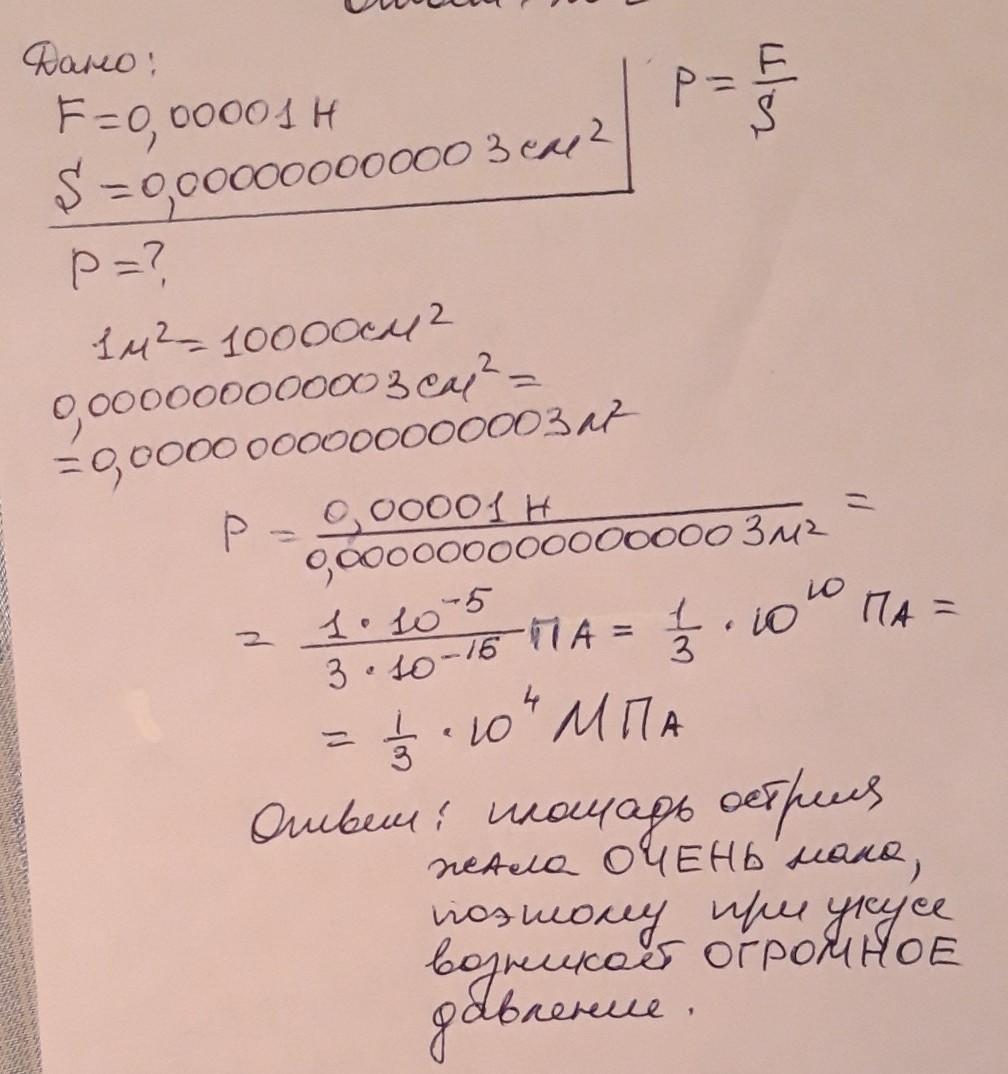 Дано:
F=0,00001 Н
S=0,000000000003 см²
P=?
P=F/S
1м²=10000см²
0,000000000003 см²=
=0,0000000000000003м²
P = 0,00001 Н / 0,0000000000000003м² =
= 1·10⁻⁵ / 3·10⁻¹⁵ ПА = 1/3 · 10¹⁰ ПА =
= 1/3 · 10⁴ МПА
Ответ: площадь острия
жала ОЧЕНЬ мала,
поэтому при укусе
возникает ОГРОМНОЕ
давление.